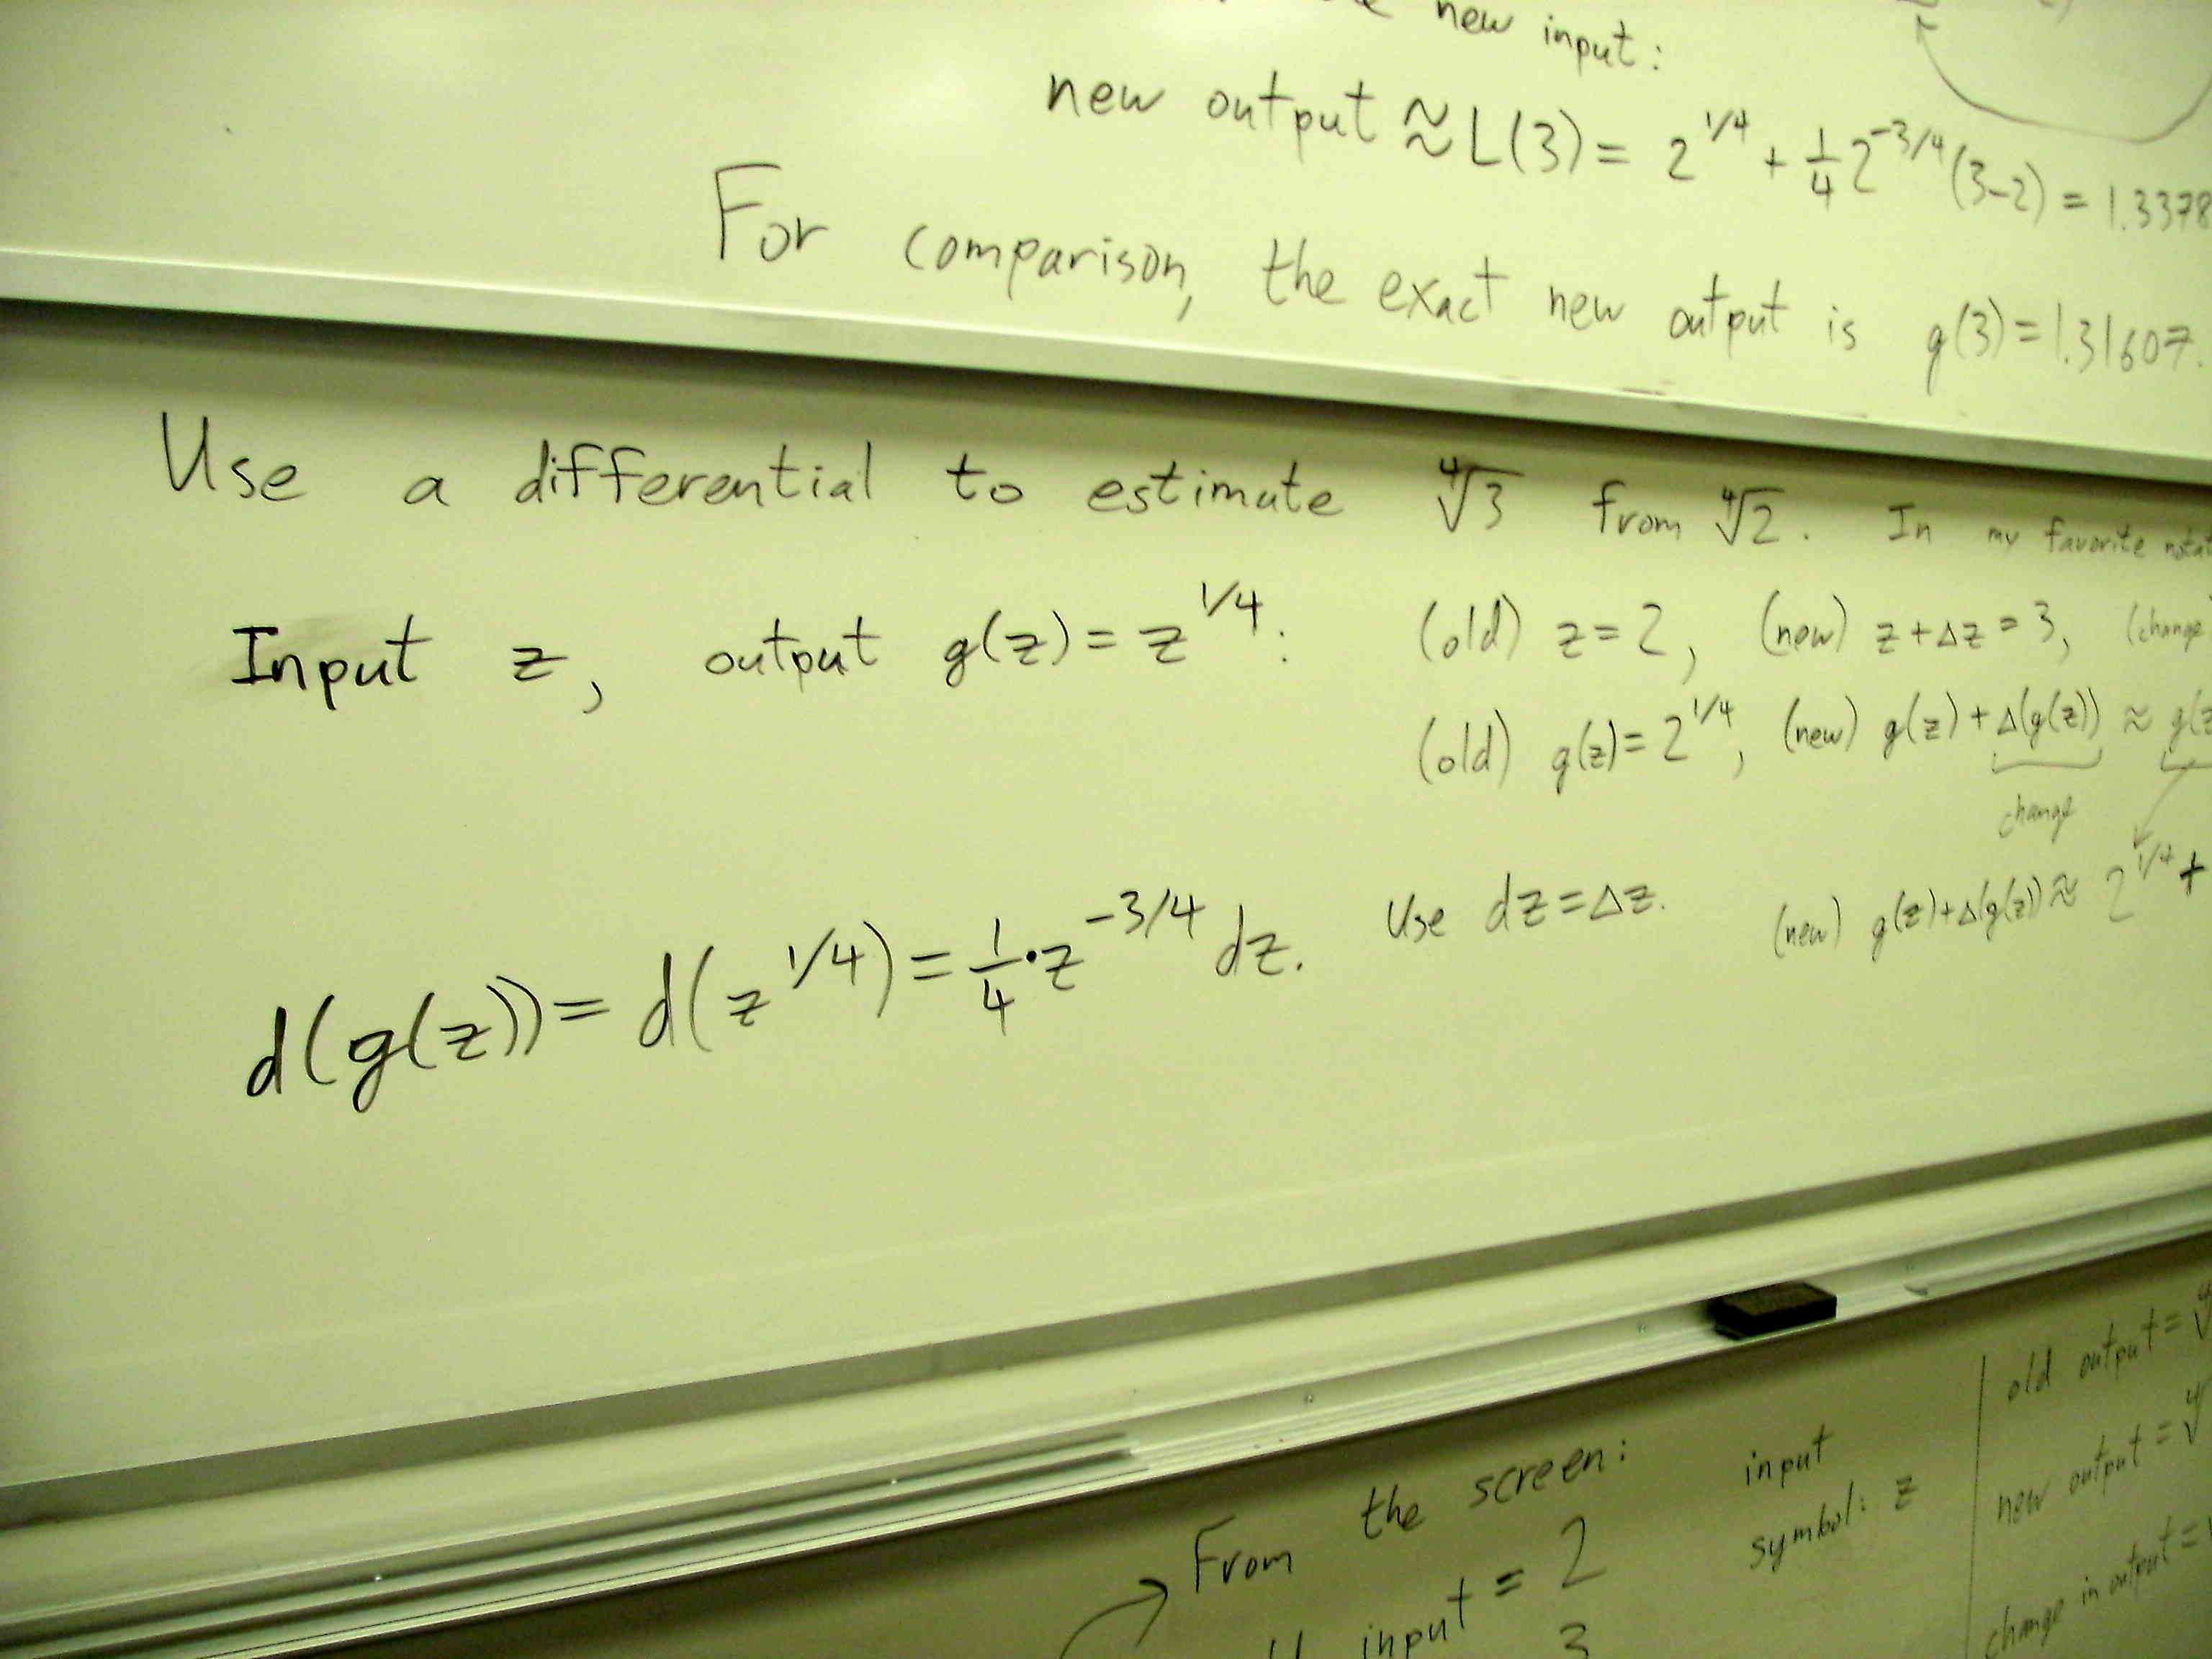 new input:
new output ≈ L(3) = 2^{1/4} + \frac{1}{4} 2^{-3/4} (3-2) = 1.3378
For comparison, the exact new output is g(3) = 1.31607.
Use a differential to estimate ∜3 from ∜2. In my favorite
Input z, output g(z) = z^{1/4}: (old) z = 2, (new) z + Δz = 3, (change
(old) g(z) = 2^{1/4}, (new) g(z) + Δ(g(z)) ≈ g(z
change
d(g(z)) = d(z^{1/4}) = \frac{1}{4} · z^{-3/4} dz. Use dz = Δz. (new) g(z) + Δ(g(z)) ≈ 2^{1/4} +
From the screen:
input = 2
3
input
symbol: z
old output = ∜
new output = ∜
change in output =